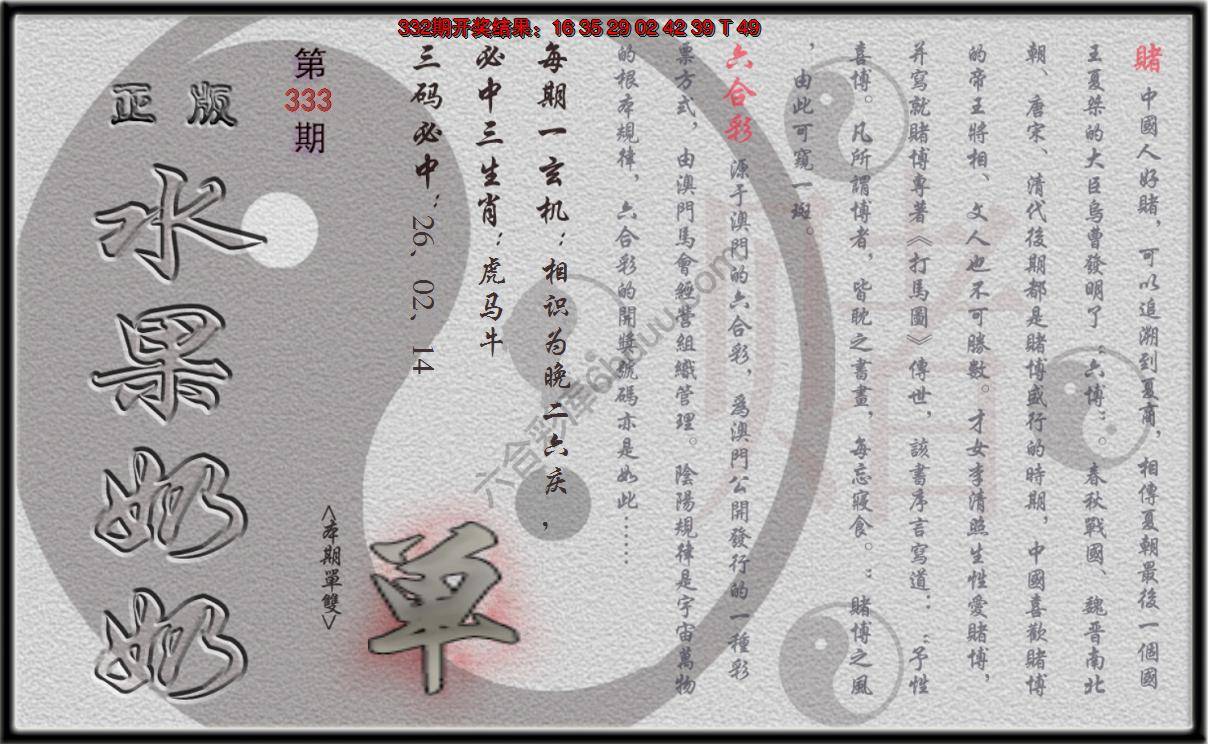 332期开奖结果：16 35 29 02 42 39 T 49
賭 中國人好賭，可以追溯到夏商，相傳夏朝最後一個國
王夏桀的大臣烏曹發明了“六博”。春秋戰國、魏晋南北
朝、唐宋、清代後期都是賭博盛行的時期，中國喜歡賭博
的帝王將相、文人也不可勝數。才女李清照生性愛賭博，
并寫就賭博專著《打馬圖》傳世，該書序言寫道：“予性
喜博。凡所謂博者，皆眈之書畫，每忘寢食。：賭博之風
，由此可窺一斑。
六合彩 源于澳門的六合彩，爲澳門公開發行的一種彩
票方式，由澳門馬會經營組織管理。陰陽規律是宇宙萬物
的根本規律，六合彩的開獎號碼亦是如此……
每期一玄机：相识为晚二六庆，
必中三生肖：虎马牛
三码必中：26、02、14
第
333
期
正版
水果奶奶
<本期單雙>
单
六合彩库6huu.com